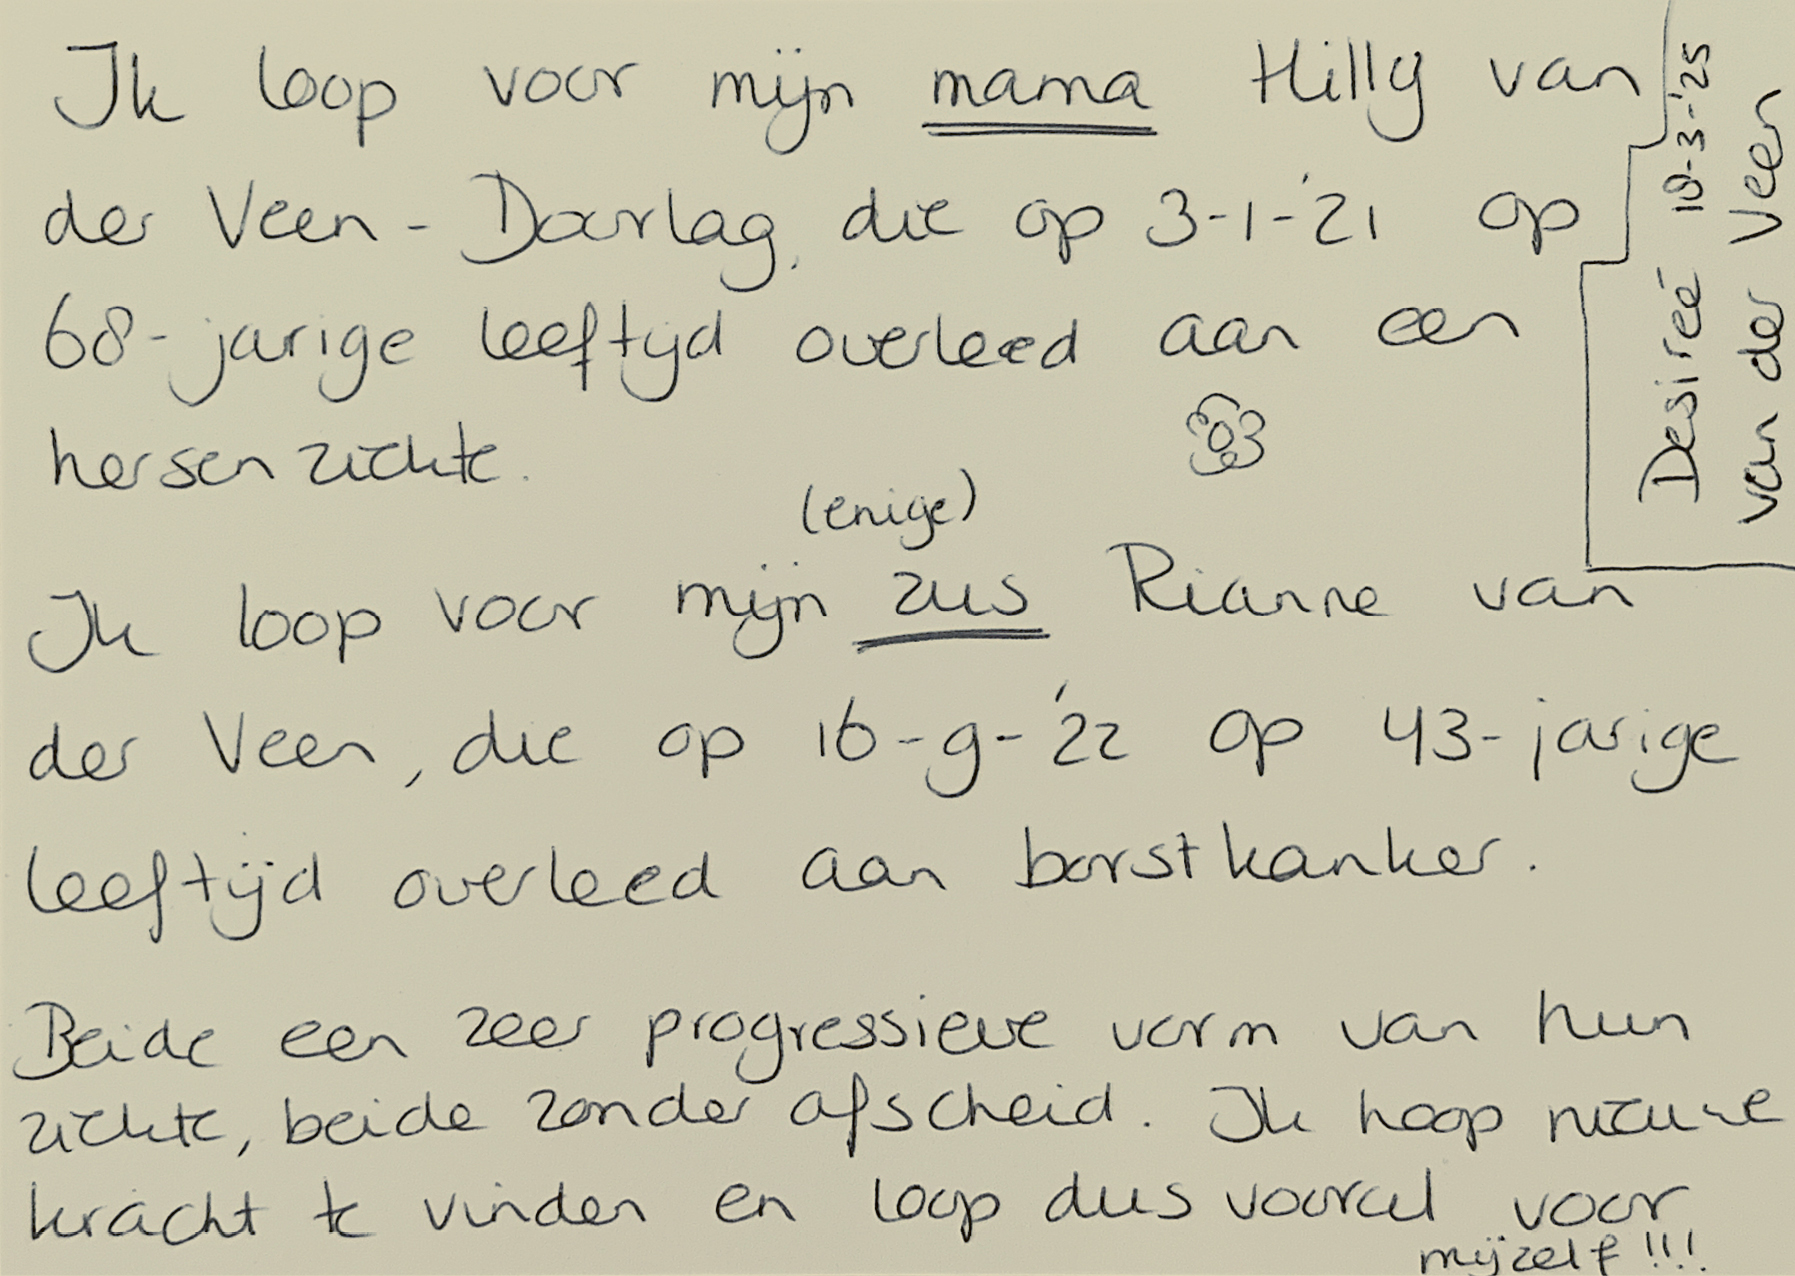 Ik loop voor mijn mama Hilly van
der Veen - Doorlag, die op 3-1-'21 op
68-jarige leeftijd overleed aan een
hersenziekte.
(enige)
Ik loop voor mijn zus Rianne van
der Veen, die op 16-9-'22 op 43-jarige
leeftijd overleed aan borstkanker.
Beide een zeer progressieve vorm van hun
ziekte, beide zonder afscheid. Ik hoop nieuwe
kracht te vinden en loop dus vooral voor
mijzelf!!!
Desireé 10-3-'25
van der Veen